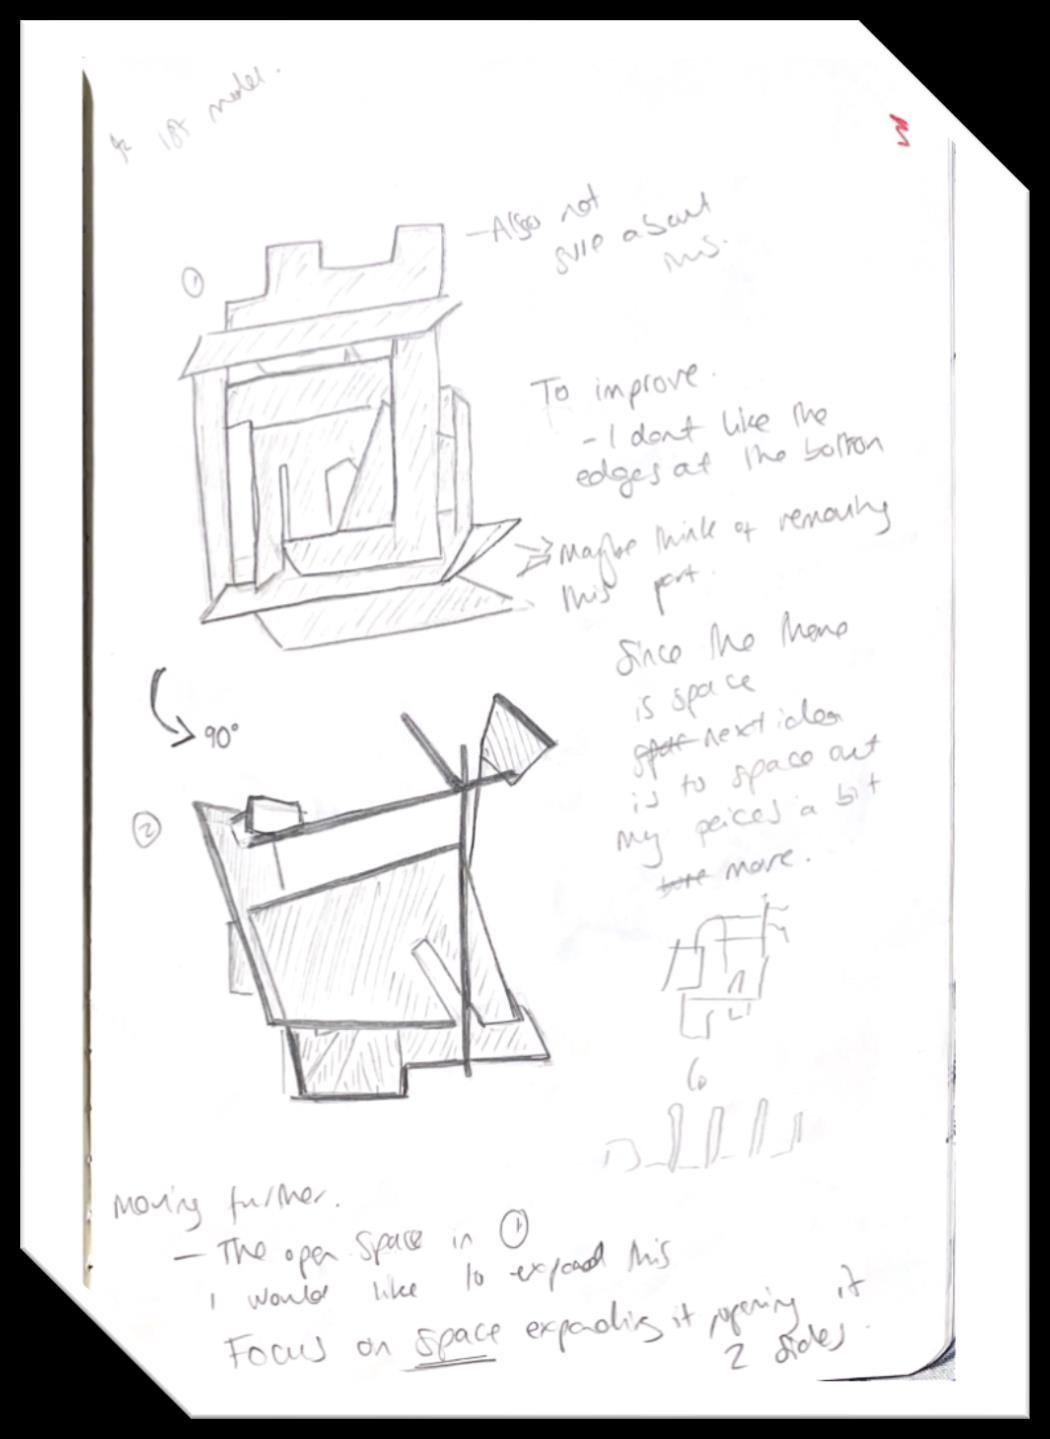 1st model.
①
- Also not
sure about
this.
To improve.
- I dont like the
edges at the bottom
Maybe think of removing
this part.
Since the theme
is space
next idea
is to space out
my peices a bit
more.
90°
②
Moving further.
- The open space in ①
I would like to expand this
Focus on space expanding it opening it
2 sides.